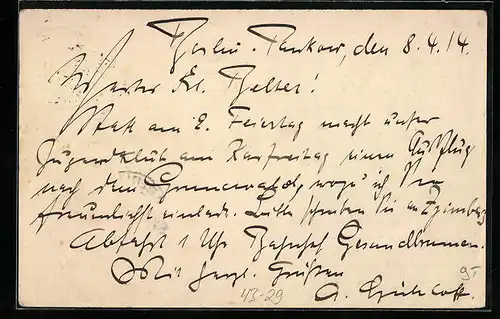 Berlin-Pankow, den 8.4.14.
Werter Hr. Belter!
Statt am 2. Feiertag macht unser
Jugendklub am Karfreitag einen Ausflug
nach dem Grunewald, wozu ich Sie
freundlichst einlade. Bitte Sie
Abfahrt 1 Uhr Bahnhof Gesundbrunnen.
Mit herzl. Grüßen
A.
43-29
95